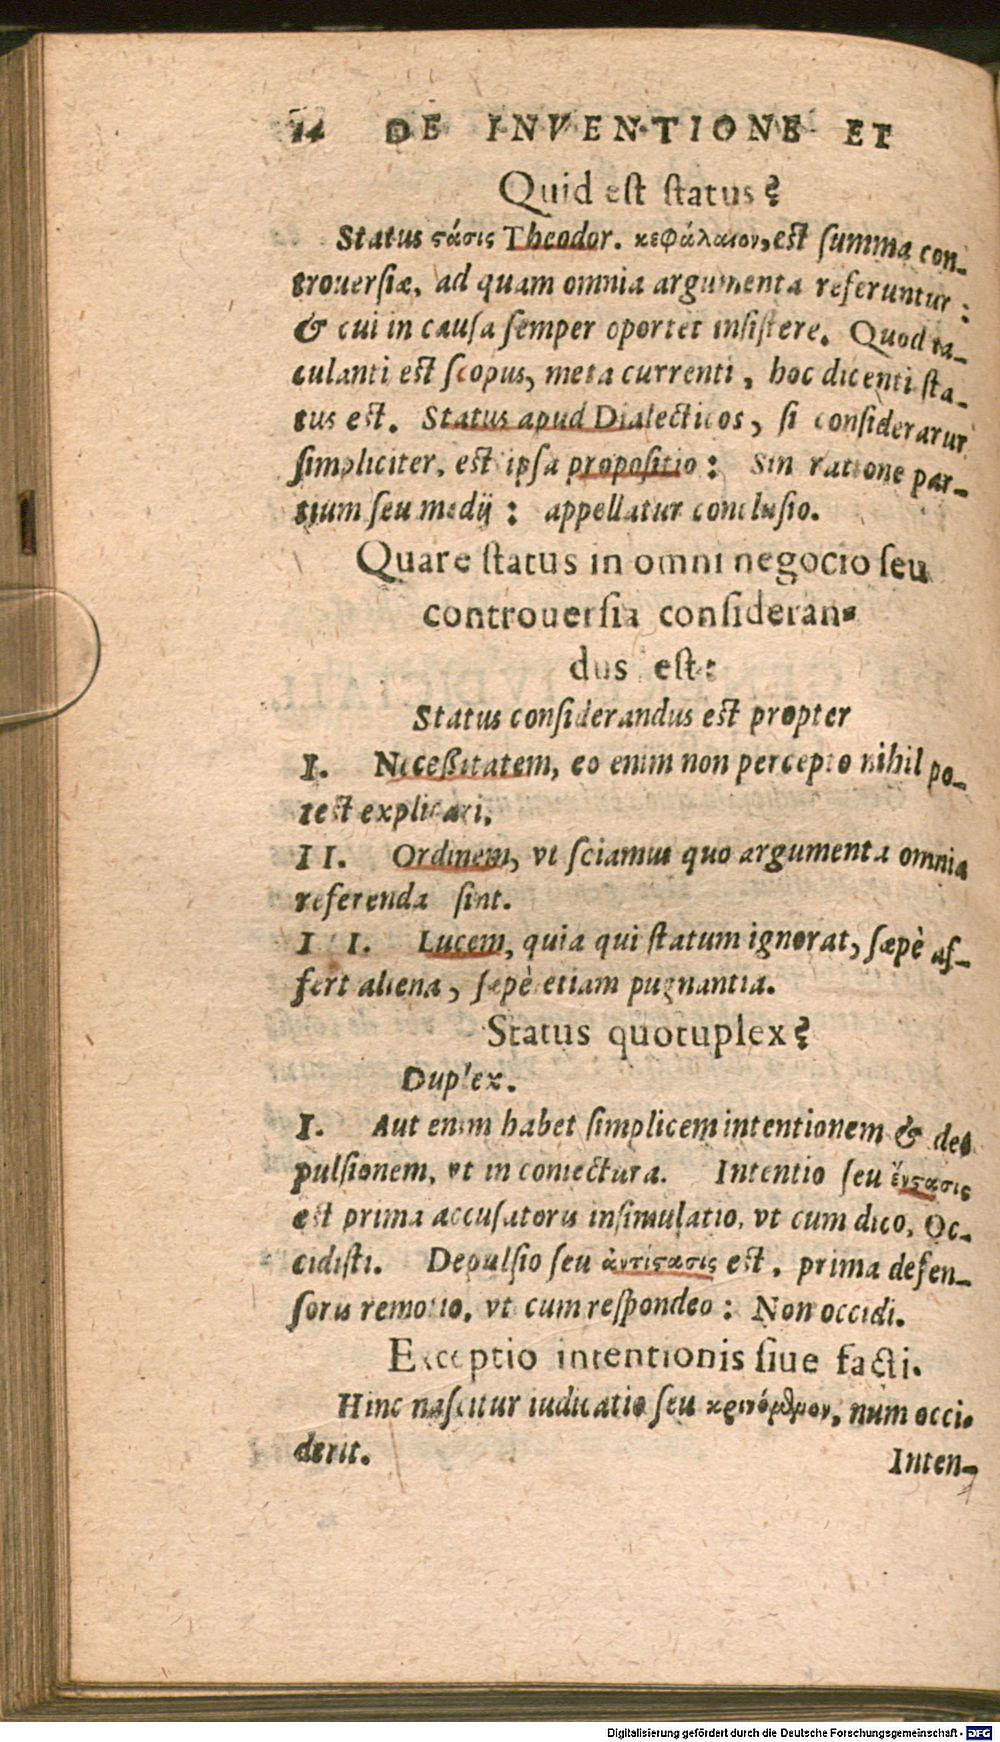 14 DE INVENTIONE ET
Quid est status?
Status ϛάσις Theodor. κεφάλαιον, est summa con-
trouersiæ, ad quam omnia argumenta referuntur:
& cui in causa semper oportet insistere. Quod ia-
culanti est scopus, meta currenti, hoc dicenti sta-
tus est. Status apud Dialecticos, si consideratur
simpliciter, est ipsa propositio: Sin ratione par-
tium seu medij: appellatur conclusio.
Quare status in omni negocio seu
controuersia consideran-
dus est:
Status considerandus est propter
I. Necessitatem, eo enim non percepto nihil po-
test explicari.
II. Ordinem, vt sciamus quo argumenta omnia
referenda sint.
I I. Lucem, quia qui statum ignorat, sæpè af-
fert aliena, sæpè etiam pugnantia.
Status quotuplex?
Duplex.
I. Aut enim habet simplicem intentionem & de-
pulsionem, vt in coniectura. Intentio seu ἔνϛασις
est prima accusatoris insimulatio, vt cum dico, Oc-
cidisti. Depulsio seu ἀντίϛασις est, prima defen-
soris remotio, vt cum respondeo: Non occidi.
Exceptio intentionis siue facti.
Hinc nascitur iudicatio seu κρινόμενον, num occi-
derit.
Inten-
Digitalisierung gefördert durch die Deutsche Forschungsgemeinschaft - DFG